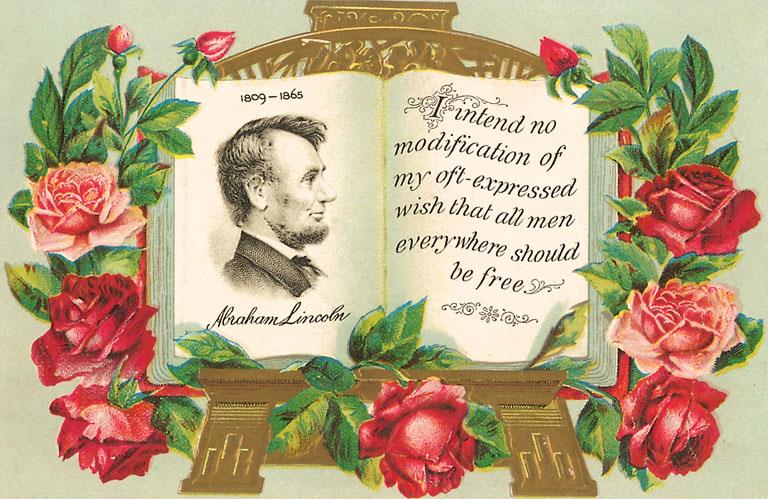 1809–1865
Abraham Lincoln
I intend no
modification of
my oft-expressed
wish that all men
everywhere should
be free